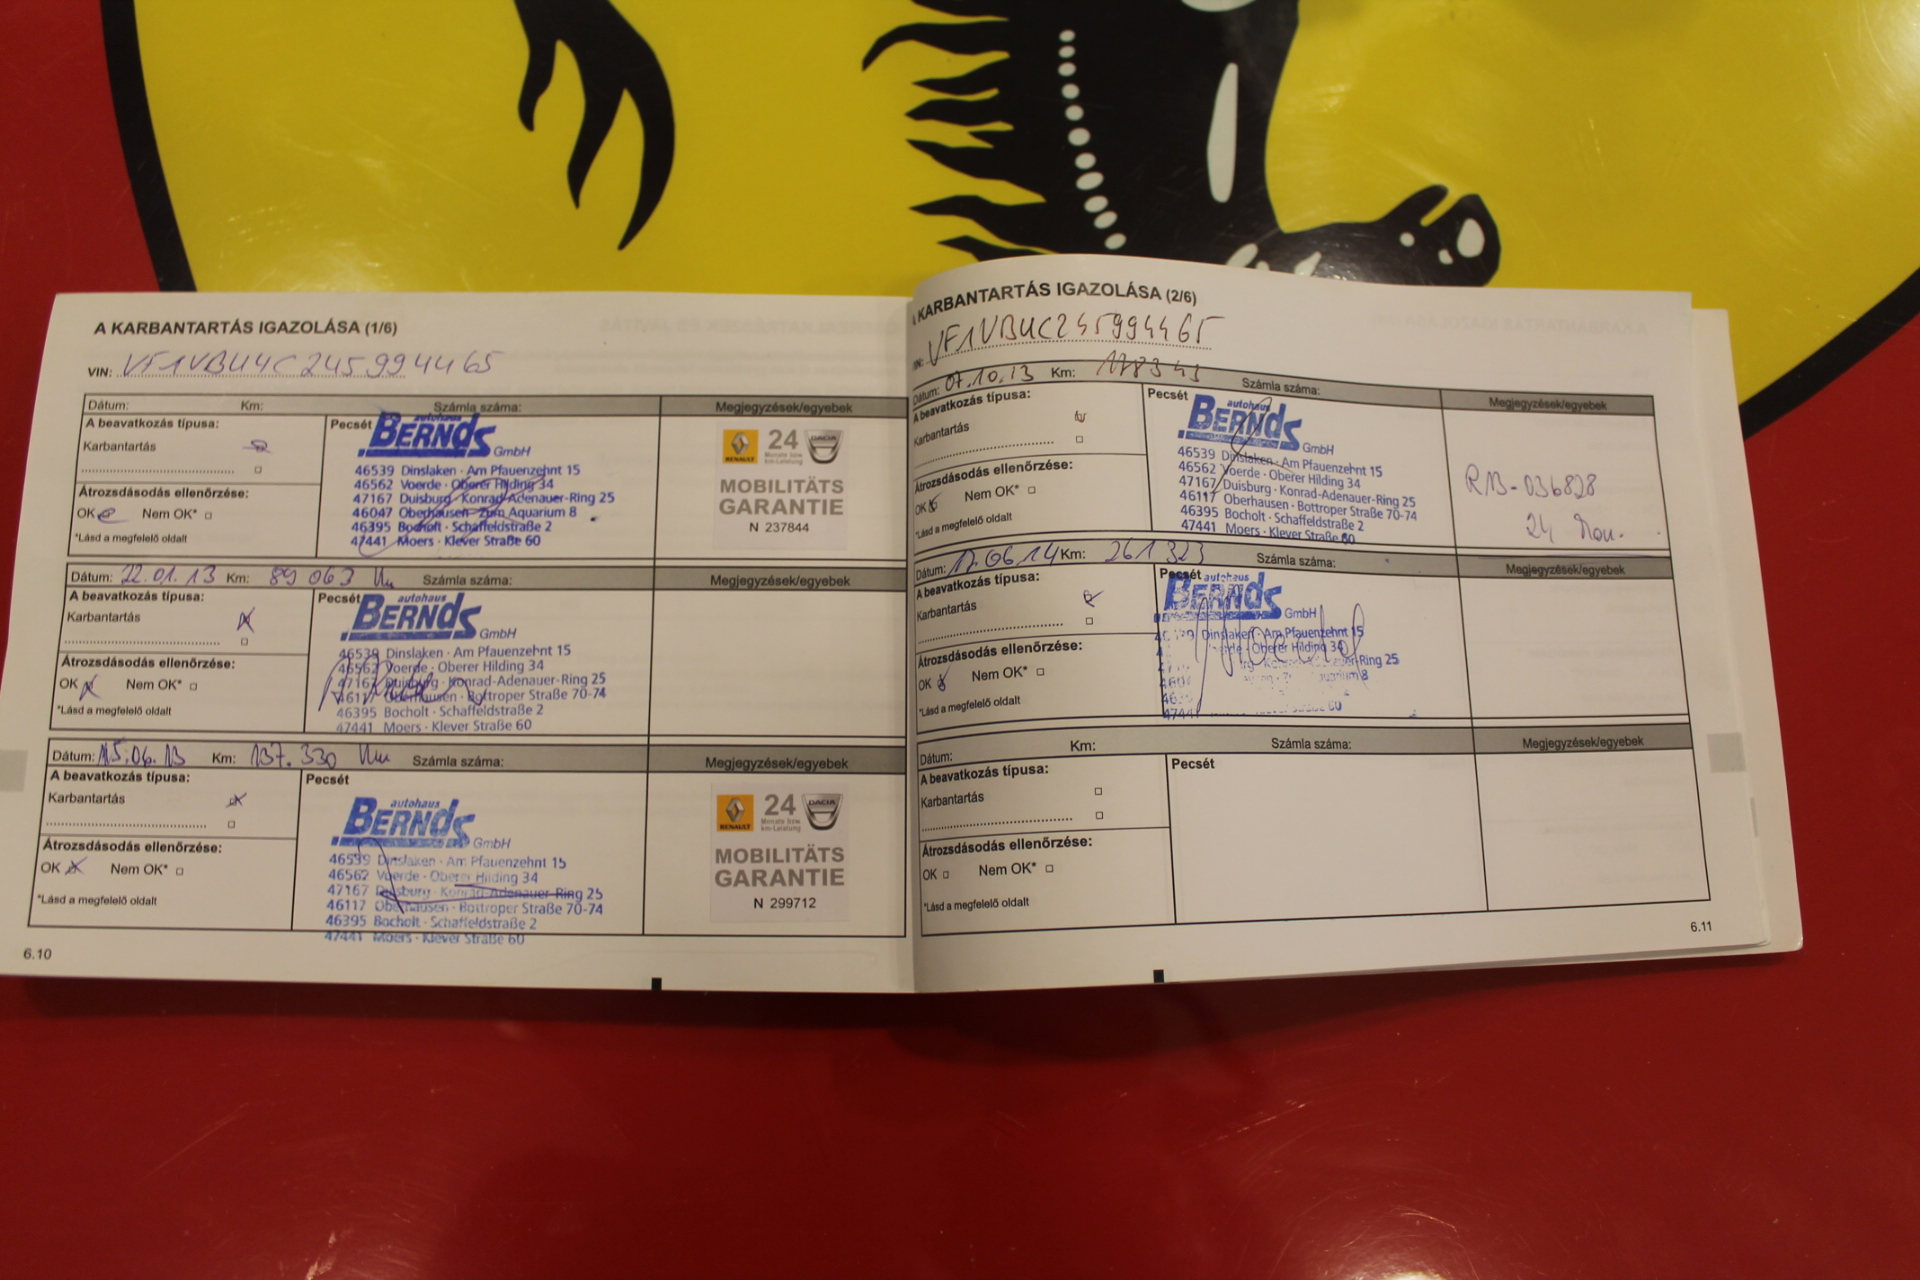 A KARBANTARTÁS IGAZOLÁSA (1/6)
VIN: VF1VBU4C245994465
Dátum: Km: Számla száma: Megjegyzések/egyebek
A beavatkozás típusa:
Karbantartás
Átrozsdásodás ellenőrzése:
OK Nem OK*
*Lásd a megfelelő oldalt
Pecsét
autohaus
BERNDS GmbH
46539 Dinslaken · Am Pfauenzehnt 15
46562 Voerde · Oberer Hilding 34
47167 Duisburg · Konrad-Adenauer-Ring 25
46047 Oberhausen · Zum Aquarium 8
46395 Bocholt · Schaffeldstraße 2
47441 Moers · Klever Straße 60
RENAULT 24 DACIA
Monate bzw.
km-Leistung
MOBILITÄTS
GARANTIE
N 237844
Dátum: 22.01.13 Km: 89 063 Számla száma: Megjegyzések/egyebek
A beavatkozás típusa:
Karbantartás
Átrozsdásodás ellenőrzése:
OK Nem OK*
*Lásd a megfelelő oldalt
Pecsét
autohaus
BERNDS GmbH
46539 Dinslaken · Am Pfauenzehnt 15
46562 Voerde · Oberer Hilding 34
47167 Duisburg · Konrad-Adenauer-Ring 25
46117 Oberhausen · Bottroper Straße 70-74
46395 Bocholt · Schaffeldstraße 2
47441 Moers · Klever Straße 60
Dátum: 15.06.13 Km: 137.330 Számla száma: Megjegyzések/egyebek
A beavatkozás típusa:
Karbantartás
Átrozsdásodás ellenőrzése:
OK Nem OK*
*Lásd a megfelelő oldalt
Pecsét
autohaus
BERNDS GmbH
46539 Dinslaken · Am Pfauenzehnt 15
46562 Voerde · Oberer Hilding 34
47167 Duisburg · Konrad-Adenauer-Ring 25
46117 Oberhausen · Bottroper Straße 70-74
46395 Bocholt · Schaffeldstraße 2
47441 Moers · Klever Straße 60
RENAULT 24 DACIA
Monate bzw.
km-Leistung
MOBILITÄTS
GARANTIE
N 299712
6.10
KARBANTARTÁS IGAZOLÁSA (2/6)
VF1VBUC245994465
Dátum: 07.10.13 Km: 178343 Számla száma: Megjegyzések/egyebek
A beavatkozás típusa:
Karbantartás
Átrozsdásodás ellenőrzése:
OK Nem OK*
*Lásd a megfelelő oldalt
Pecsét
autohaus
BERNDS GmbH
46539 Dinslaken · Am Pfauenzehnt 15
46562 Voerde · Oberer Hilding 34
47167 Duisburg · Konrad-Adenauer-Ring 25
46117 Oberhausen · Bottroper Straße 70-74
46395 Bocholt · Schaffeldstraße 2
47441 Moers · Klever Straße 60
RB-036828
24 Mon.
Dátum: 17.06.14 Km: 261 323 Számla száma: Megjegyzések/egyebek
A beavatkozás típusa:
Karbantartás
Átrozsdásodás ellenőrzése:
OK Nem OK*
*Lásd a megfelelő oldalt
Pecsét
autohaus
BERNDS GmbH
Dinslaken · Am Pfauenzehnt 15
Oberer Hilding 34
Ring 25
47441
Dátum: Km: Számla száma: Megjegyzések/egyebek
A beavatkozás típusa:
Karbantartás
Átrozsdásodás ellenőrzése:
OK Nem OK*
*Lásd a megfelelő oldalt
Pecsét
6.11